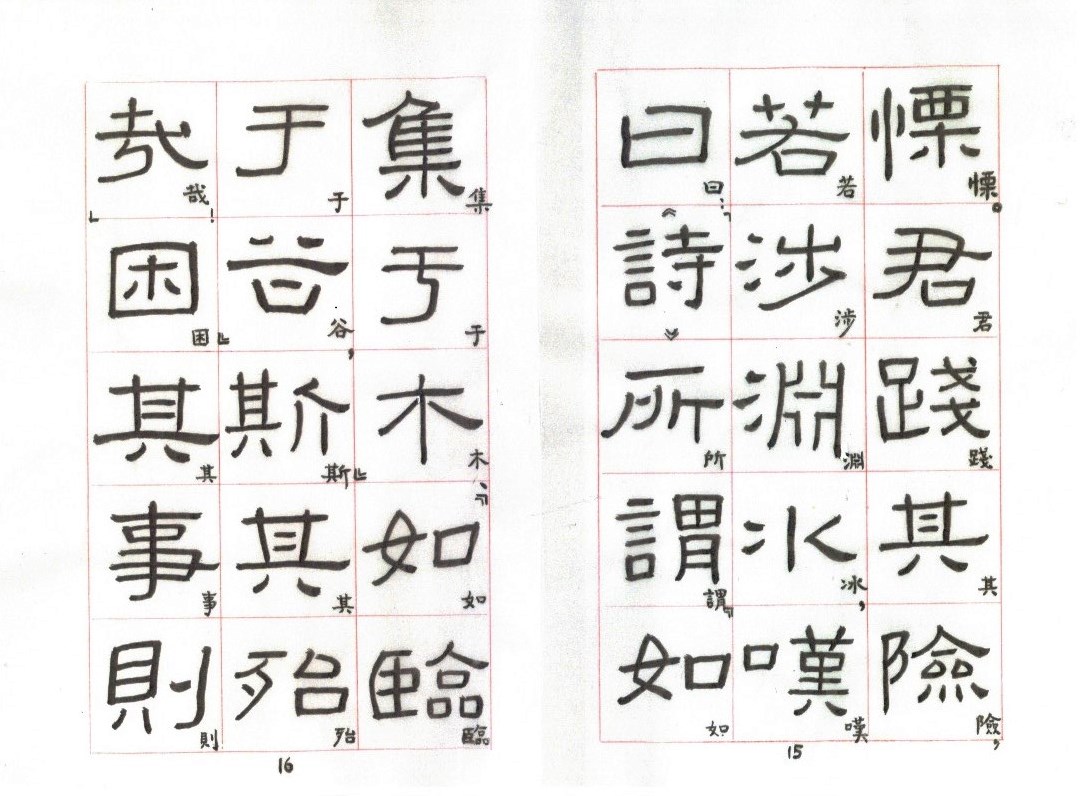 慄君踐其險
慄。君踐其險，
若涉淵冰嘆
若涉淵冰，嘆
曰詩所謂如
曰：「《詩》所謂『如
15
集于木如臨
集于木』、『如臨
于谷斯其殆
于谷』，斯其殆
哉困其事則
哉！」困其事則
16